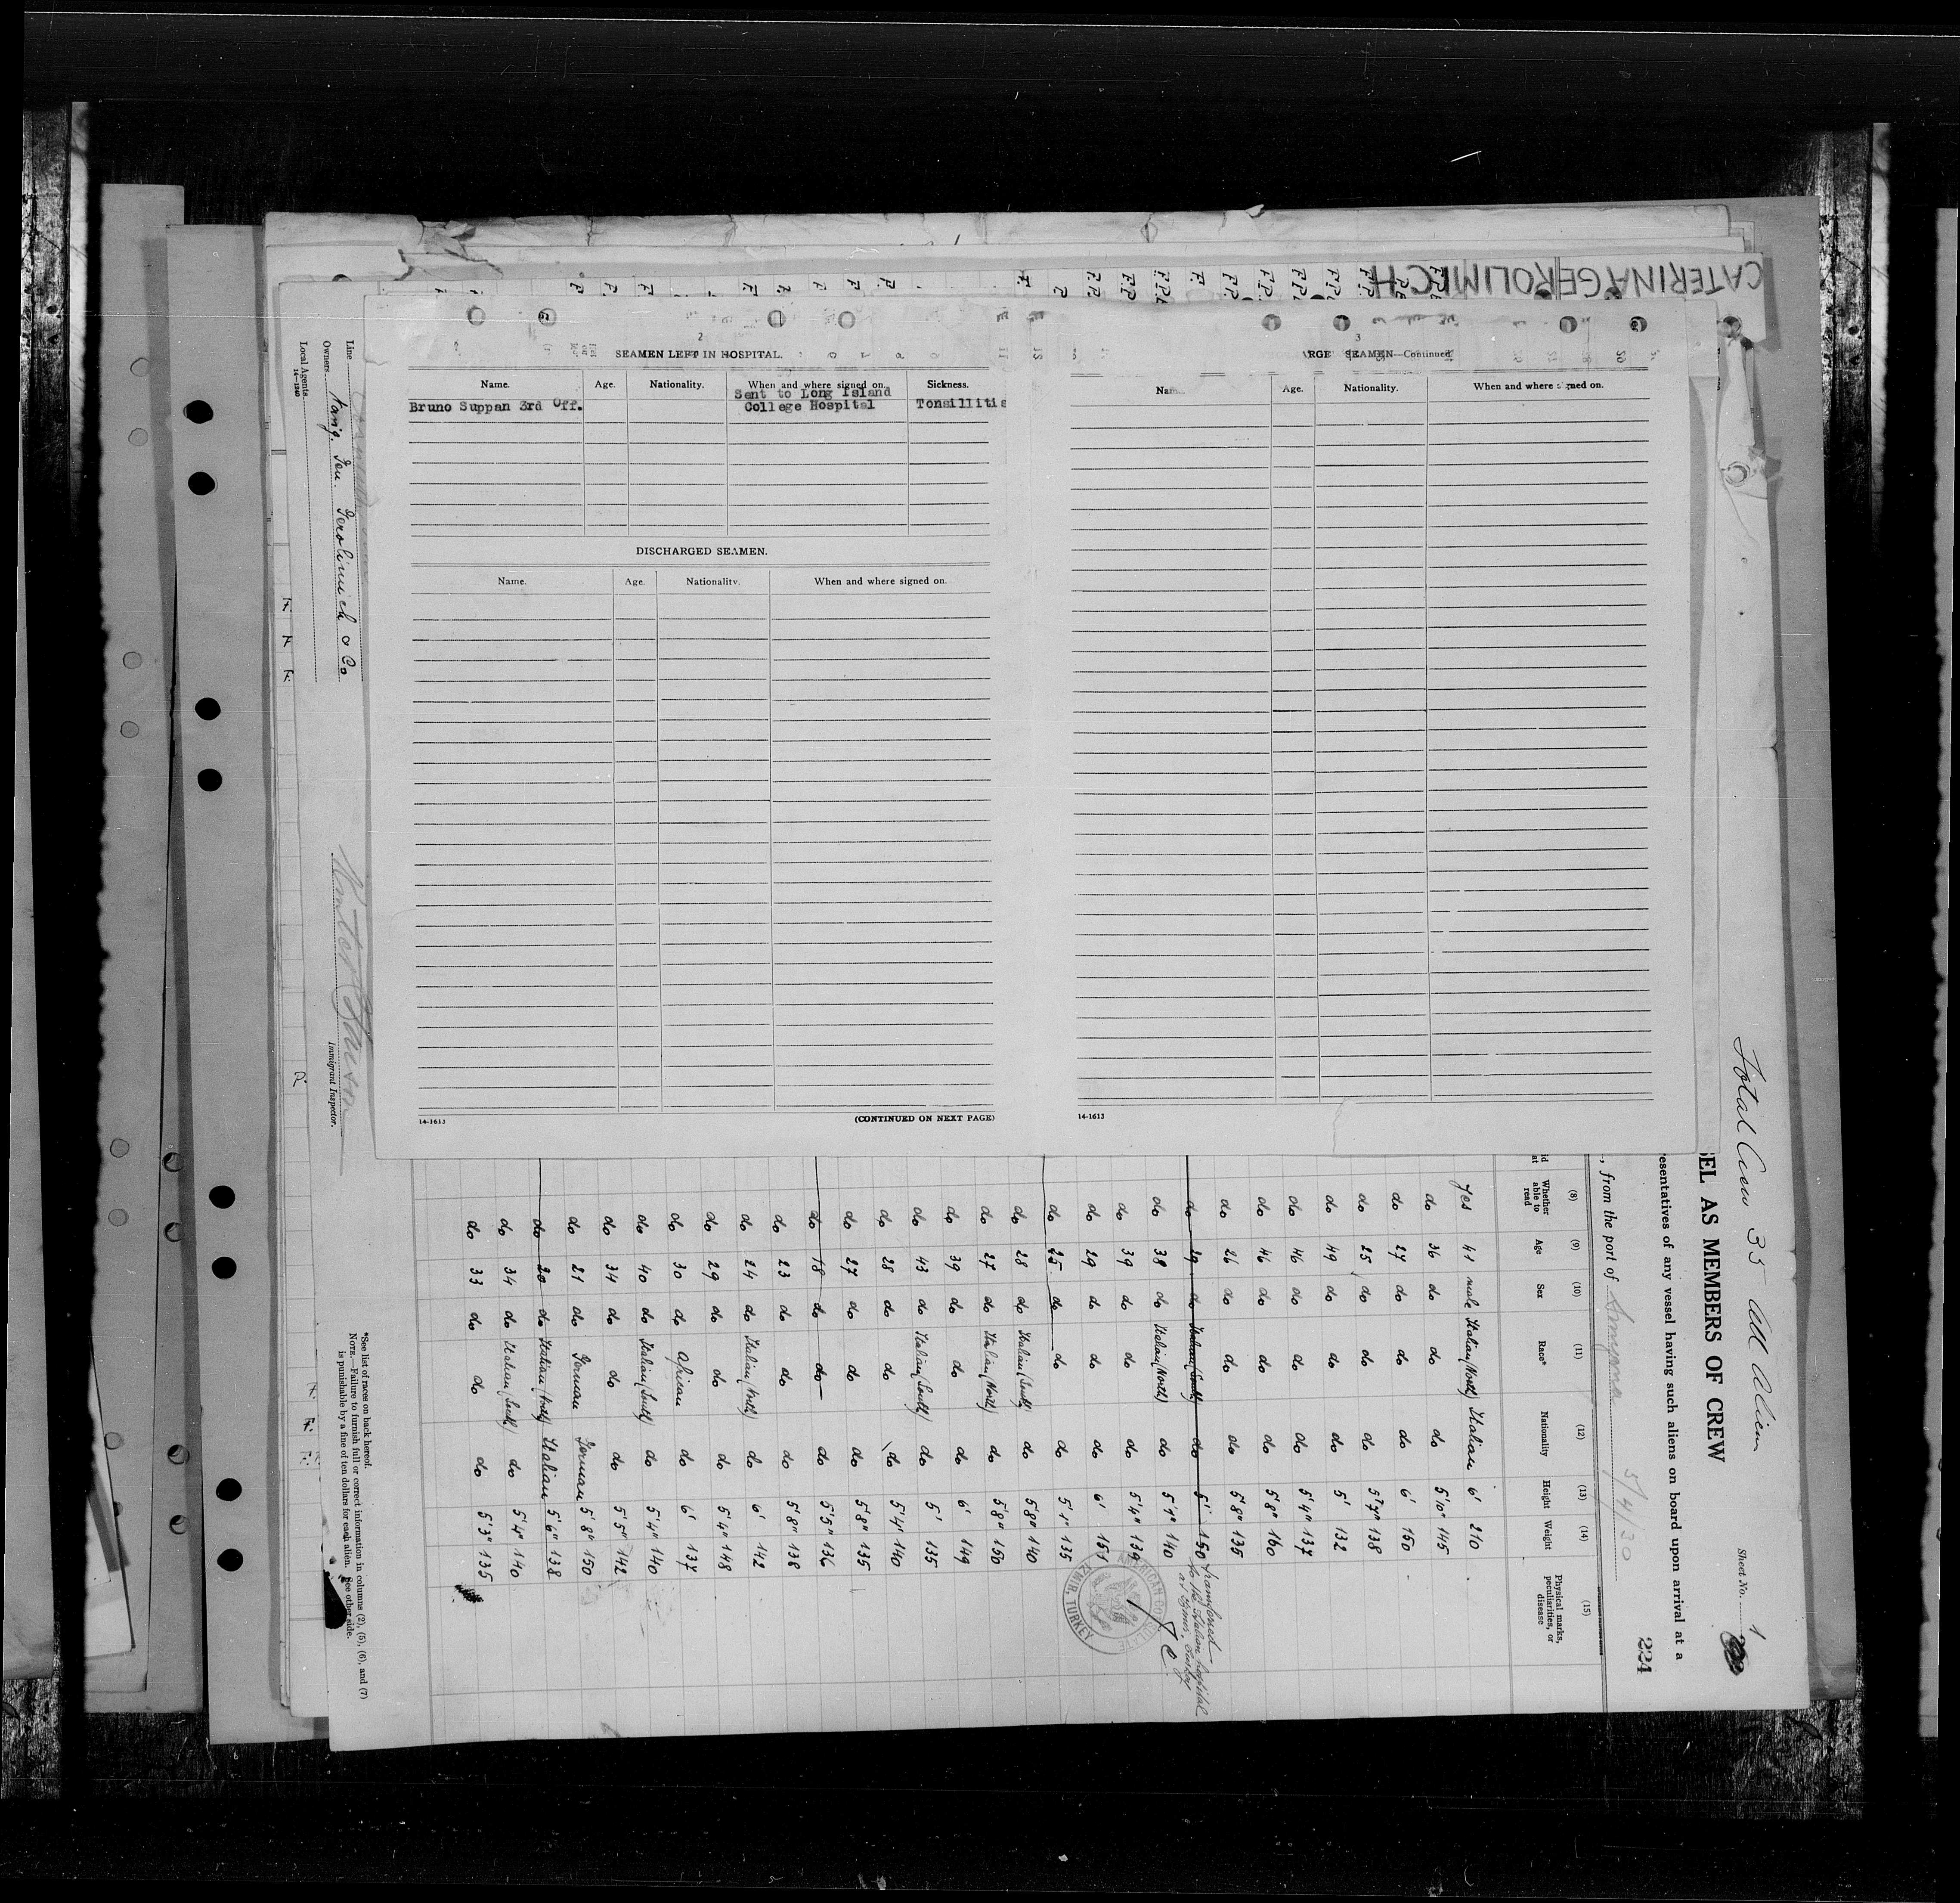 CATERINA GEROLIMICH
2
SEAMEN LEFT IN HOSPITAL.
Name. Age. Nationality. When and where signed on. Sickness.
Bruno Suppan 3rd Off. Sent to Long Island College Hospital Tonsillitis
DISCHARGED SEAMEN.
Name. Age. Nationality. When and where signed on.
14-1613
(CONTINUED ON NEXT PAGE)
3
ARGE SEAMEN—Continued.
Na Age. Nationality. When and where signed on.
14-1613
Line
Owners Navig. Gen. Gerolimich & Co
Local Agents
14-1240
Immigrant Inspector.
Total Crew 35 all alien
Sheet No. 1
SEL AS MEMBERS OF CREW
224
resentatives of any vessel having such aliens on board upon arrival at a
, from the port of Smyrna 5/4/30
(8) (9) (10) (11) (12) (13) (14) (15)
Whether able to read Age Sex Race* Nationality Height Weight Physical marks, peculiarities, or disease
Yes 41 male Italian (North) Italian 6' 210
do 36 do do do 5'10" 145
do 27 do do do 6' 150
do 25 do do do 5'7" 138
do 49 do do do 5' 132
do 46 do do do 5'4" 137
do 46 do do do 5'8" 160
do 26 do do do 5'8" 135
do 19 do Italian (South) do 5' 150 Transferred to the Italian hospital at Izmir, Turkey
do 38 do Italian (North) do 5'1" 140
do 39 do do do 5'4" 139
do 29 do do do 6' 151
do 25 do do do 5'1" 135
do 28 do Italian (South) do 5'8" 140
do 27 do Italian (North) do 5'8" 150
do 39 do do do 6' 149
do 43 do Italian (South) do 5' 135
do 28 do do do 5'4" 140
do 27 do do do 5'8" 135
do 18 do do do 5'5" 136
do 23 do do do 5'8" 138
do 24 do Italian (North) do 6' 142
do 29 do do do 5'4" 148
do 30 do African do 6' 137
do 40 do Italian (South) do 5'4" 140
do 34 do do do 5'5" 142
do 21 do German German 5'8" 150
do 20 do Italian (North) Italian 5'6" 138
do 34 do Italian (South) do 5'4" 140
do 33 do do do 5'3" 135
AMERICAN CONSULATE
IZMIR, TURKEY
*See list of races on back hereof.
NOTE.—Failure to furnish full or correct information in columns (2), (5), (6), and (7)
is punishable by a fine of ten dollars for each alien. See other side.